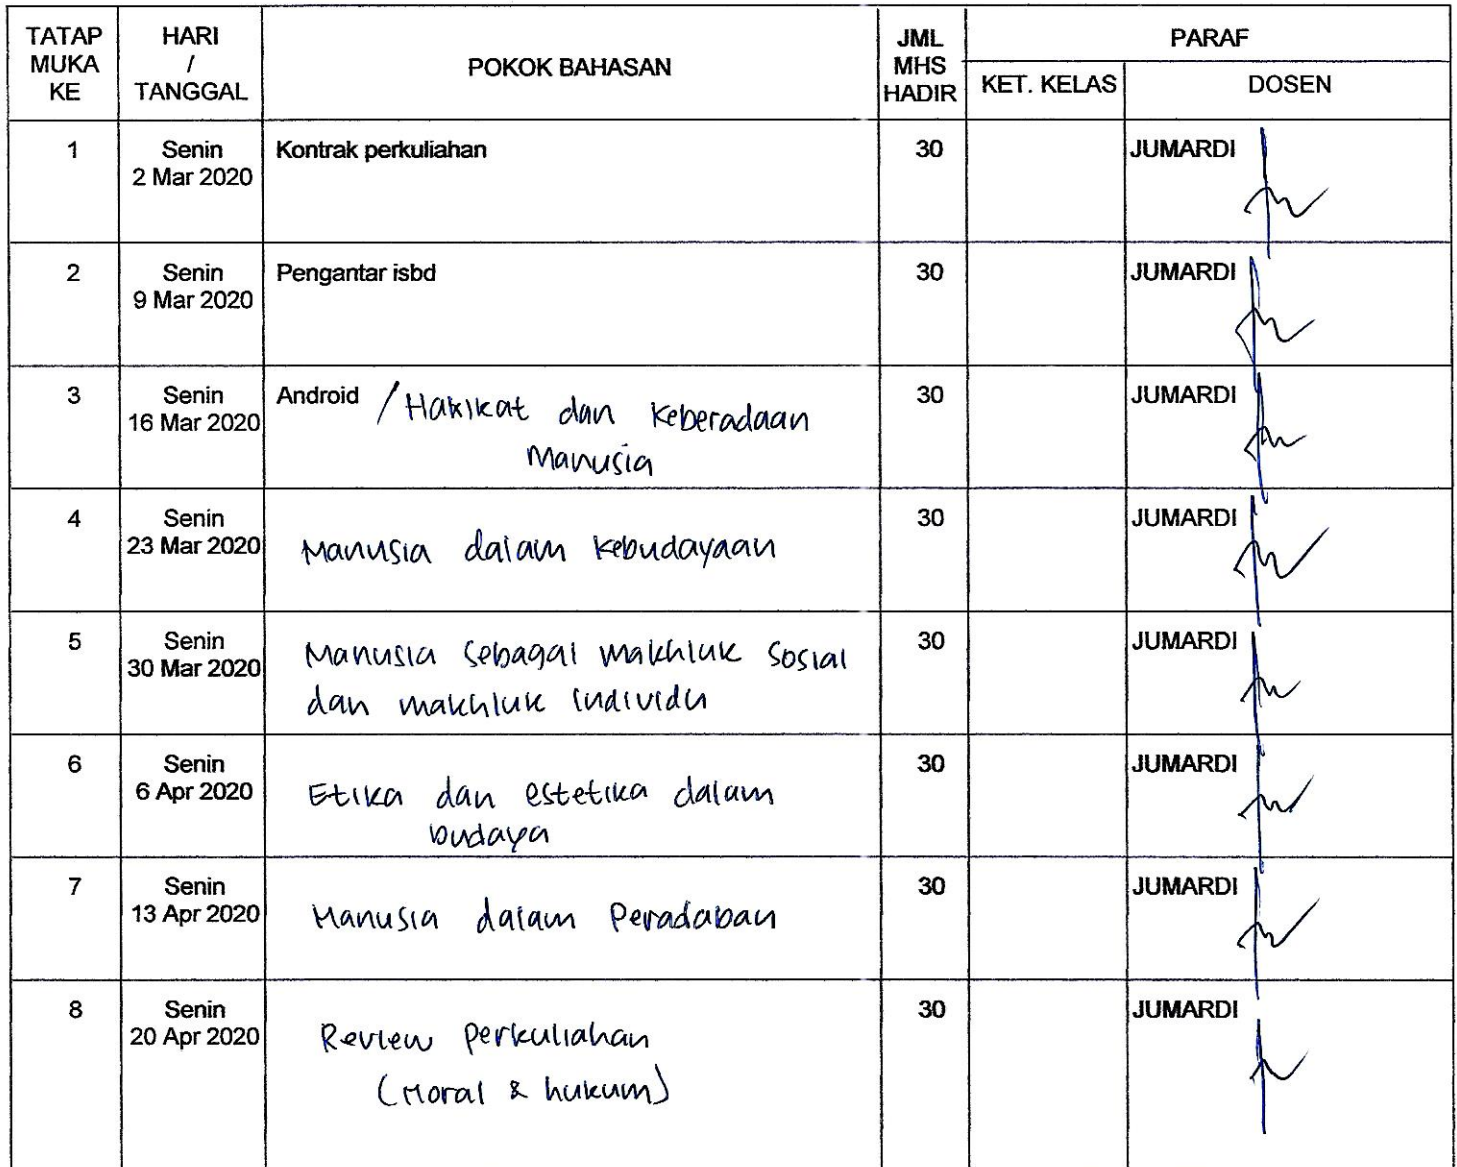 TATAP MUKA KE
HARI / TANGGAL
POKOK BAHASAN
JML MHS HADIR
PARAF
KET. KELAS
DOSEN
1
Senin
2 Mar 2020
Kontrak perkuliahan
30
JUMARDI
2
Senin
9 Mar 2020
Pengantar isbd
30
JUMARDI
3
Senin
16 Mar 2020
Android / Hakikat dan Keberadaan
Manusia
30
JUMARDI
4
Senin
23 Mar 2020
Manusia dalam Kebudayaan
30
JUMARDI
5
Senin
30 Mar 2020
Manusia sebagai makhluk sosial
dan makhluk individu
30
JUMARDI
6
Senin
6 Apr 2020
Etika dan estetika dalam
budaya
30
JUMARDI
7
Senin
13 Apr 2020
Manusia dalam Peradaban
30
JUMARDI
8
Senin
20 Apr 2020
Review perkuliahan
(Moral & hukum)
30
JUMARDI